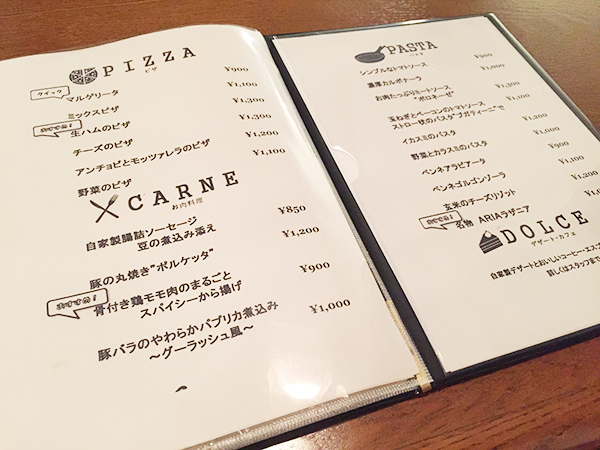 PIZZA
ピザ
クイック
マルゲリータ ¥900
ミックスピザ ¥1,100
おすすめ!
生ハムのピザ ¥1,300
チーズのピザ ¥1,300
アンチョビとモッツァレラのピザ ¥1,200
野菜のピザ ¥1,100
CARNE
お肉料理
自家製腸詰ソーセージ
豆の煮込み添え ¥850
豚の丸焼き"ポルケッタ" ¥1,200
おすすめ!
骨付き鶏モモ肉のまるごと
スパイシーから揚げ ¥900
豚バラのやわらかパプリカ煮込み
~グーラッシュ風~ ¥1,000
PASTA
パスタ
シンプルなトマトソース ¥900
濃厚カルボナーラ ¥1,000
お肉たっぷりミートソース
"ボロネーゼ" ¥1,300
玉ねぎとベーコンのトマトソース
ストロー状のパスタ"ブガティーニ"で ¥1,100
イカスミのパスタ ¥1,200
野菜とカラスミのパスタ ¥1,000
ペンネアラビアータ ¥900
ペンネゴルゴンゾーラ ¥1,100
玄米のチーズリゾット
名物 ARIAラザニア
DOLCE
デザート・カフェ
自家製デザートとおいしいコーヒー・エス
詳しくはスタッフまで